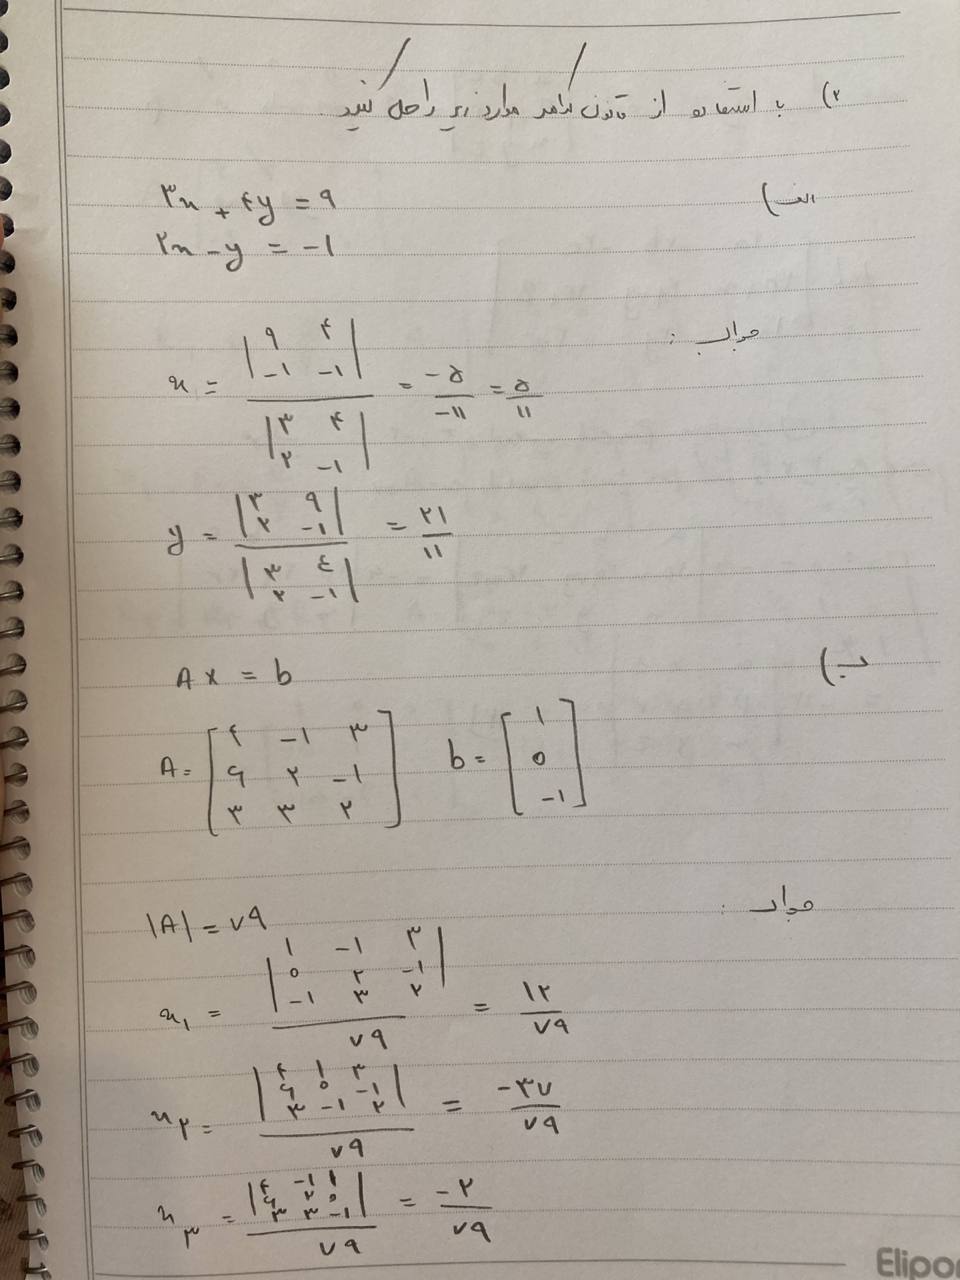 ۲) با استفاده از قانون کرامر موارد زیر را حل کنید.
الف)
۳x + ۴y = ۹
۲x - y = -۱
جواب :
x = |۹ ۴| / |۳ ۴| = -۵/-۱۱ = ۵/۱۱
|-۱ -۱| / |۲ -۱|
y = |۳ ۹| / |۳ ٤| = ۲۱/۱۱
|۲ -۱| / |۲ -۱|
ب)
Ax = b
A = [۴ -۱ ۳ b = [۱
۶ ۲ -۱ ۰
۳ ۳ ۲] -۱]
جواب :
|A| = ۷۹
x₁ = |۱ -۱ ۳
۰ ۲ -۱
-۱ ۳ ۲| / ۷۹ = ۱۲/۷۹
x۲ = |۴ ۱ ۳
۶ ۰ -۱
۳ -۱ ۲| / ۷۹ = -۳۷/۷۹
x۳ = |۴ -۱ ۱
۶ ۲ ۰
۳ ۳ -۱| / ۷۹ = -۲/۷۹